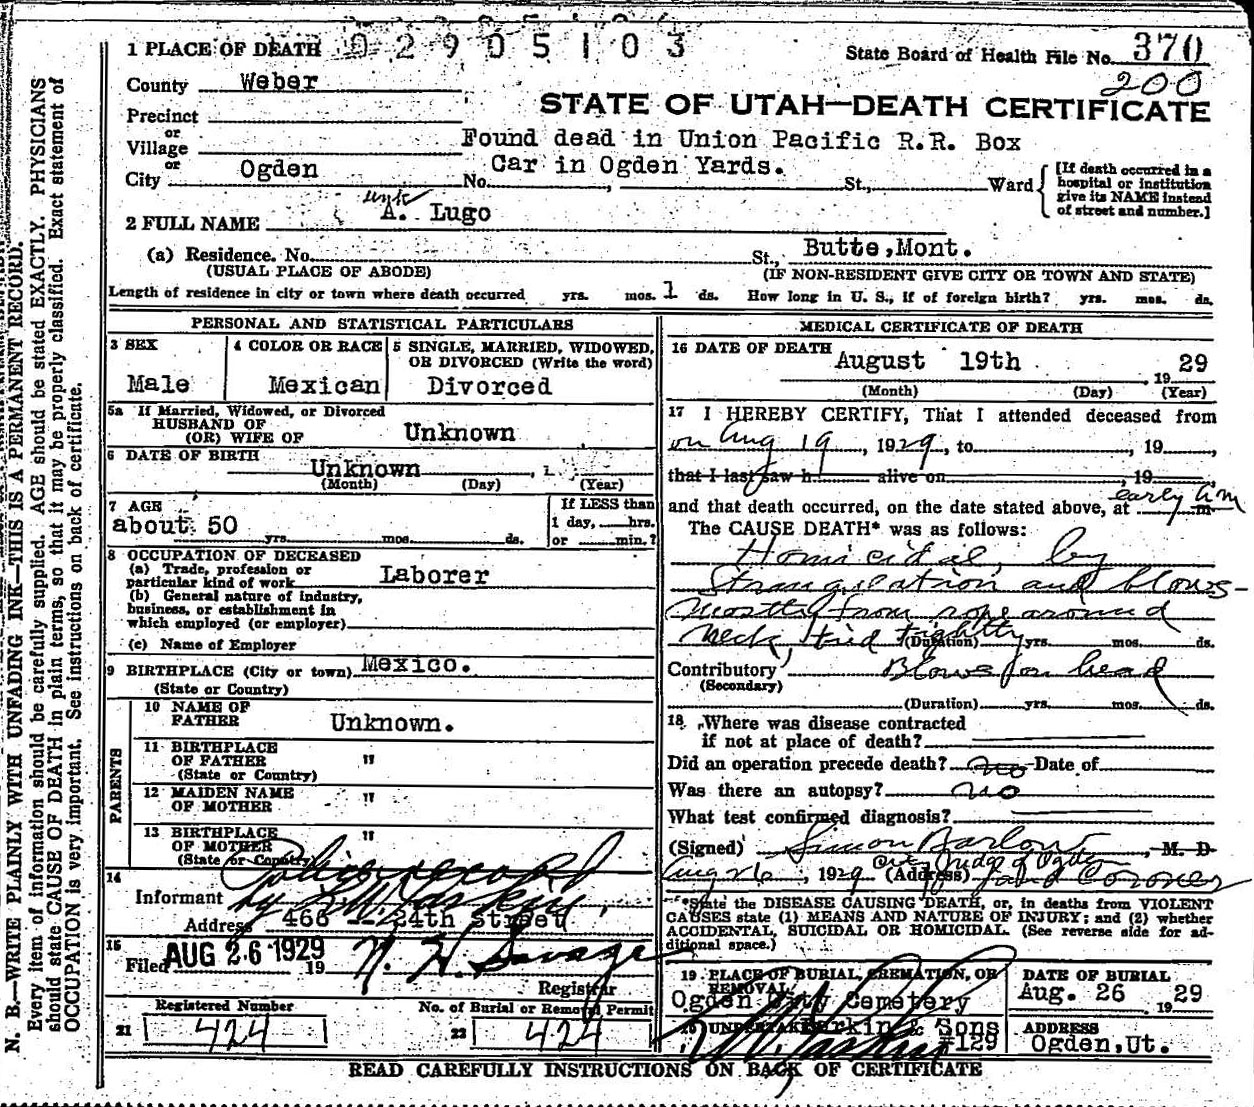 02905103
State Board of Health File No. 370
200
1 PLACE OF DEATH
County Weber
STATE OF UTAH—DEATH CERTIFICATE
Precinct
or
Village
or
City Ogden
Found dead in Union Pacific R.R. Box
Car in Ogden Yards.
No. , St., Ward
[If death occurred in a
hospital or institution
give its NAME instead
of street and number.]
2 FULL NAME A. Lugo
(a) Residence. No. St., Butte, Mont.
(USUAL PLACE OF ABODE) (IF NON-RESIDENT GIVE CITY OR TOWN AND STATE)
Length of residence in city or town where death occurred yrs. mos. 1 ds. How long in U. S., if of foreign birth? yrs. mos. ds.
PERSONAL AND STATISTICAL PARTICULARS
3 SEX
Male
4 COLOR OR RACE
Mexican
5 SINGLE, MARRIED, WIDOWED,
OR DIVORCED (Write the word)
Divorced
5a If Married, Widowed, or Divorced
HUSBAND OF
(OR) WIFE OF Unknown
6 DATE OF BIRTH
Unknown , 1
(Month) (Day) (Year)
7 AGE
about 50 yrs. mos. ds.
If LESS than
1 day, hrs.
or min.?
8 OCCUPATION OF DECEASED
(a) Trade, profession or
particular kind of work Laborer
(b) General nature of industry,
business, or establishment in
which employed (or employer)
(c) Name of Employer
9 BIRTHPLACE (City or town) Mexico.
(State or Country)
PARENTS
10 NAME OF
FATHER Unknown.
11 BIRTHPLACE
OF FATHER "
(State or Country)
12 MAIDEN NAME
OF MOTHER "
13 BIRTHPLACE
OF MOTHER "
(State or Country)
14
Informant Police record
by L.W. Larkin,
Address 466 - 24th Street
15
Filed AUG 26 1929 19 N. H. Savage
Registrar
Registered Number
21 424
No. of Burial or Removal Permit
22 424
MEDICAL CERTIFICATE OF DEATH
16 DATE OF DEATH
August 19th , 19 29
(Month) (Day) (Year)
17 I HEREBY CERTIFY, That I attended deceased from
on Aug 19, 1929, to , 19 ,
that I last saw h alive on , 19 ,
and that death occurred, on the date stated above, at early A.m m
The CAUSE DEATH* was as follows:
Homicidal, by
Strangulation and blows-
mostly from rope around
neck, tied tightly
(Duration) yrs. mos. ds.
Contributory Blows on head
(Secondary)
(Duration) yrs. mos. ds.
18 Where was disease contracted
if not at place of death?
Did an operation precede death? no Date of
Was there an autopsy? no
What test confirmed diagnosis?
(Signed) Simon Barlow, M. D
Aug 26, 1929 (Address) City Judge of Ogden
and Coroner
*State the DISEASE CAUSING DEATH, or, in deaths from VIOLENT
CAUSES state (1) MEANS AND NATURE OF INJURY; and (2) whether
ACCIDENTAL, SUICIDAL OR HOMICIDAL. (See reverse side for ad-
ditional space.)
19 PLACE OF BURIAL, CREMATION, OR
REMOVAL
Ogden City Cemetery
DATE OF BURIAL
Aug. 26 19 29
20 UNDERTAKER Larkin & Sons
#129
ADDRESS
Ogden, Ut.
READ CAREFULLY INSTRUCTIONS ON BACK OF CERTIFICATE
N. B.—WRITE PLAINLY WITH UNFADING INK—THIS IS A PERMANENT RECORD.
Every item of information should be carefully supplied. AGE should be stated EXACTLY. PHYSICIANS
should state CAUSE OF DEATH in plain terms, so that it may be properly classified. Exact statement of
OCCUPATION is very important. See instructions on back of certificate.